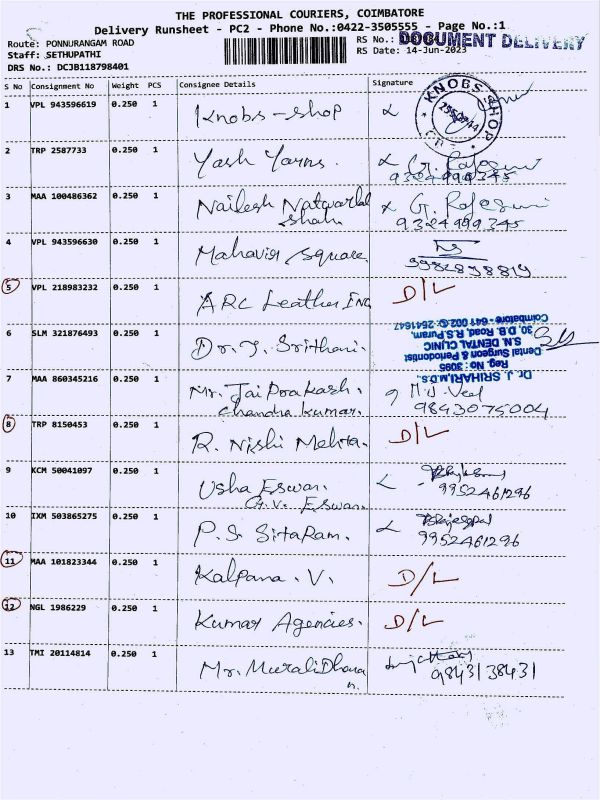 THE PROFESSIONAL COURIERS, COIMBATORE
Delivery Runsheet - PC2 - Phone No.:0422-3505555 - Page No.:1
Route: PONNURANGAM ROAD
Staff: SETHUPATHI
DRS No.: DCJB118798401
RS No.:
DOCUMENT DELIVERY
RS Date: 14-Jun-2023
S No Consignment No Weight PCS Consignee Details Signature
1 VPL 943596619 0.250 1 Knobs - shop
KNOBS SHOP
2 TRP 2587733 0.250 1 Yash Yarns.
3 MAA 100486362 0.250 1 Nailesh Natwarlal
Shah.
9364999345
4 VPL 943596630 0.250 1 Mahavir Square
5 VPL 218983232 0.250 1 ARC Leather INC D/L
6 SLM 321876493 0.250 1 Dr. J. Srithani.
Dr. J. SRIHARI, M.D.S.,
Reg No: 3095
Dental Surgeon & Periodontist
S.N. DENTAL CLINIC
30, D.B. Road, R.S. Puram,
Coimbatore - 641 002 ✆: 2541647
7 MAA 860345216 0.250 1 Mr. Jai Prakash.
Chandra Kumar.
9843075004
8 TRP 8150453 0.250 1 R. Nishi Mehta. D/L
9 KCM 50041097 0.250 1 Usha Eswan.
G.V. Eswan.
9952461296
10 IXM 503865275 0.250 1 P.S. SitaRam.
9952461296
11 MAA 101823344 0.250 1 Kalpana. V. D/L
12 NGL 1986229 0.250 1 Kumar Agencies. D/L
13 TMI 20114814 0.250 1 Mr. MuraliDhara
n.
9843138431